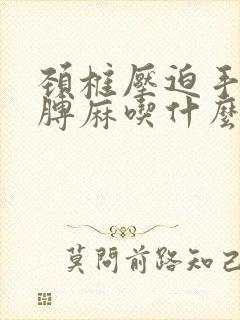 頚椎壓迫手
膊麻喫什麼
莫問前路知己